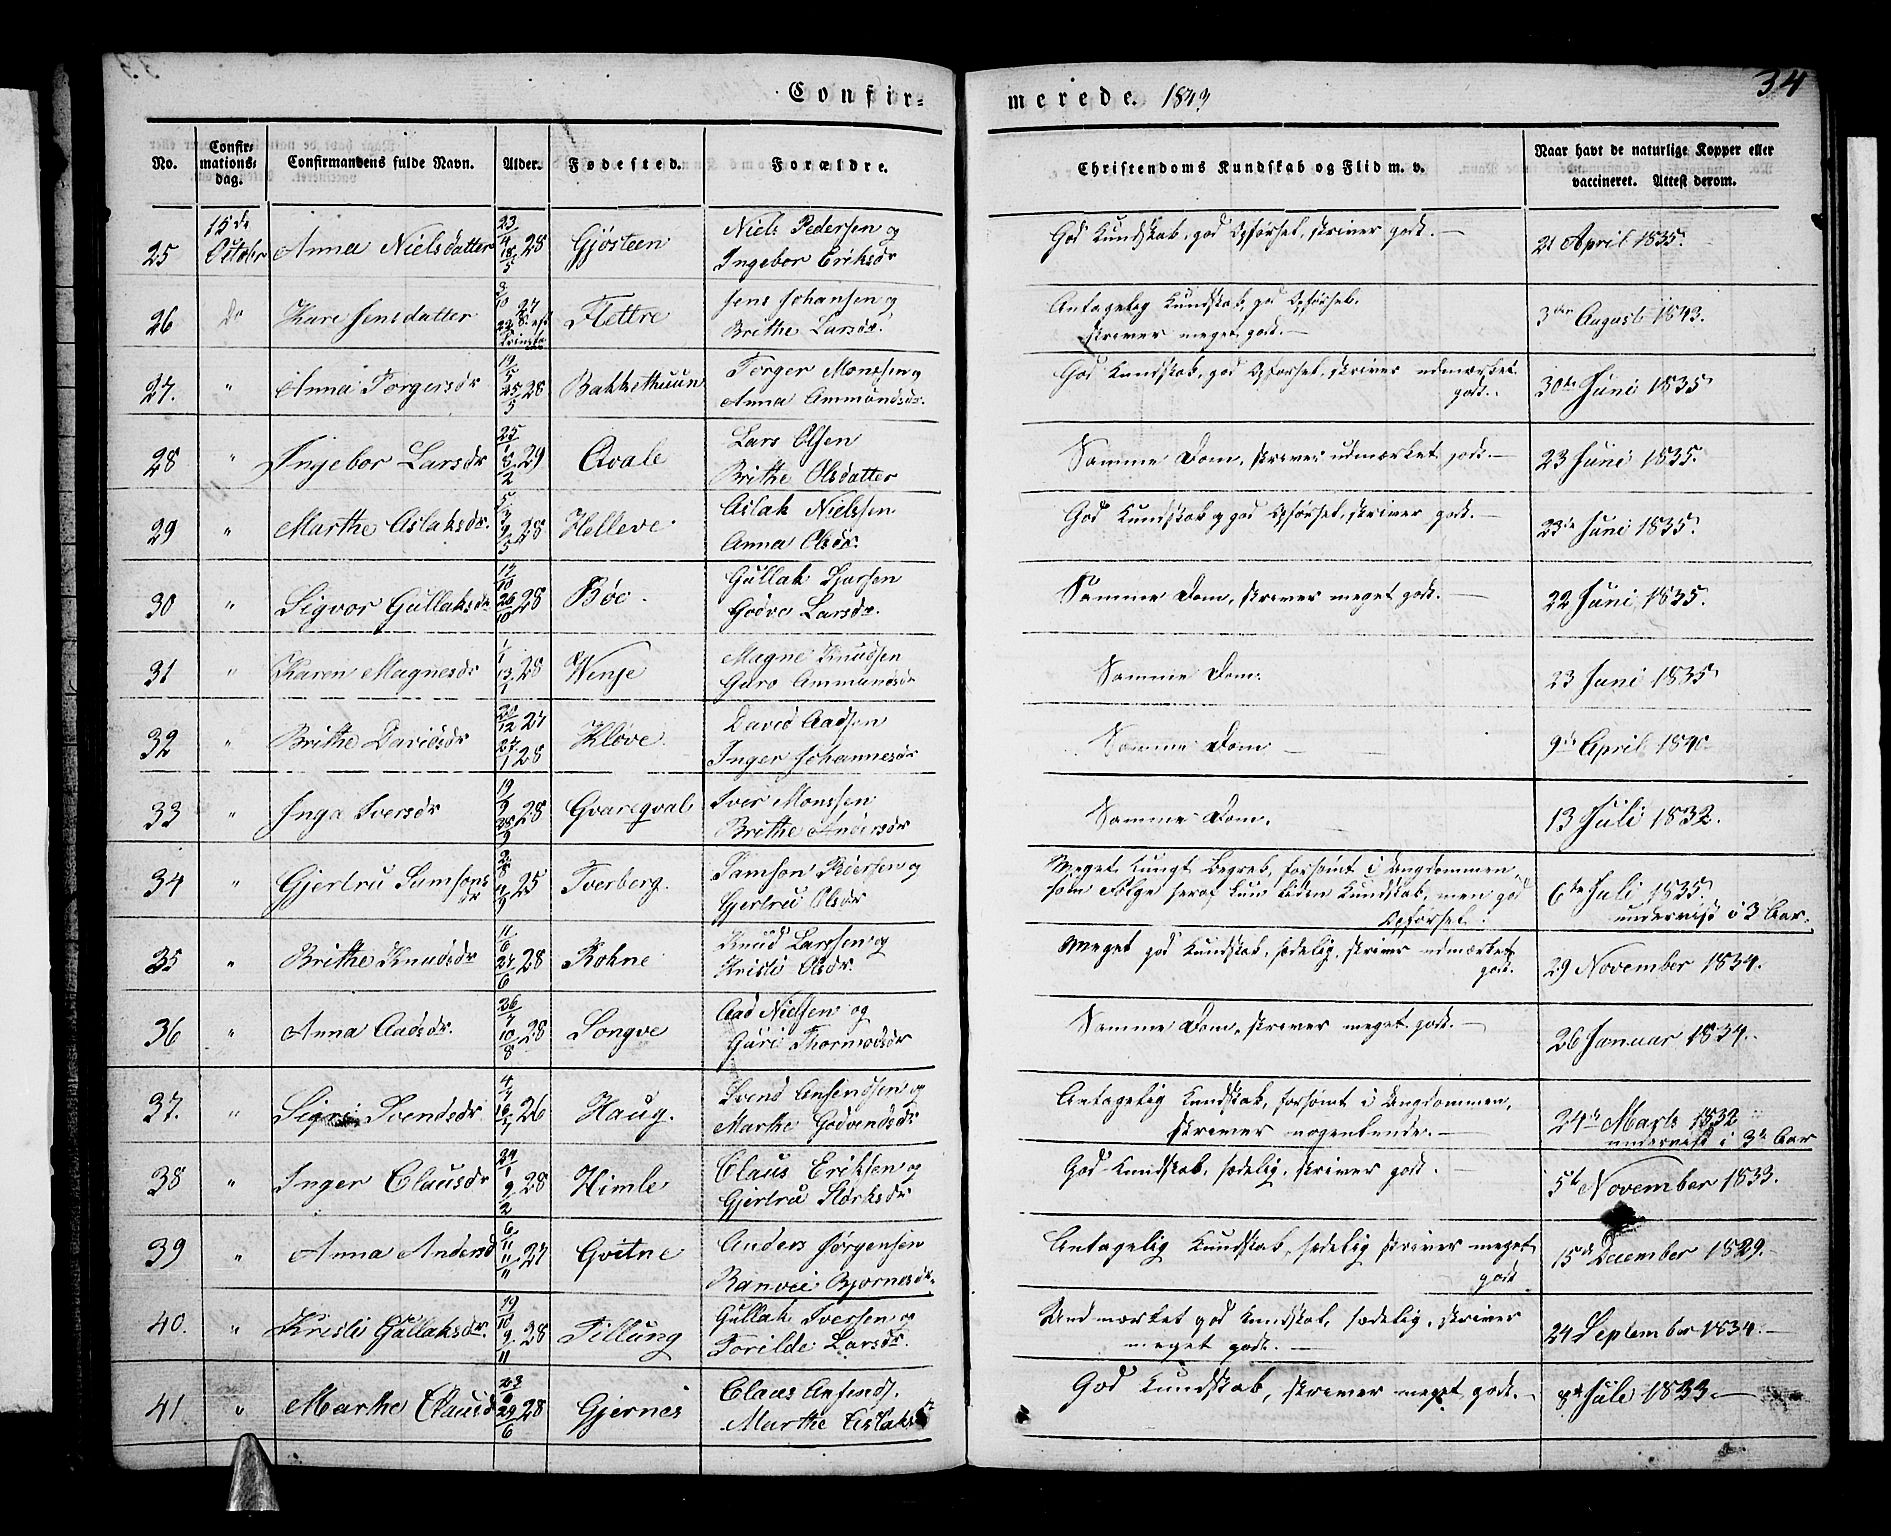 34
Confir-
merede. 1843
No.
Confir-
mations-
dag.
Confirmandens fulde Navn.
Alder.
Fødested.
Forældre.
Christendoms Kundskab og Flid m. v.
Naar havt de naturlige Kopper eller
vaccineret. Attest derom.
25 15de October Anna Nielsdatter 23/4 18/5 28 Gjøsteen Niels Pedersen og
Ingebor Eriksdr
God Kundskab, god Opførsel, skriver godt. — 21 April 1835.
26 do Kari Jensdatter 27 Flettre Jens Johansen og
Brithe Larsdr.
Antagelig Kundskab, god Opførsel.
skriver meget godt. — 3die August 1843.
27. " Anna Torgersdr 25/5 28 Bakkethuun Torger Monssen og
Anna Ammundsdr.
God Kundskab, god Opførsel, skriver udmærket
godt. 30te Juni 1835
28 " Ingebor Larsdr 25/1 8/2 29 Qvale Lars Olsen
Brithe Olsdatter
Samme Dom, skriver udmærket godt. — 23 Juni 1835.
29 " Marthe Aslaksdr. 9/5 28 Helleve Aslak Nielssen
Anna Olsdr.
God Kundskab og god Opførsel, skriver godt. — 23de Juni 1835.
30 " Sigvor Gullaksdr 26/10 28 Bøe. Gullak
Godve Larsdr.
Samme Dom, skriver meget godt. — 22 Juni 1835.
31 " Karen Magnesdr 1/1 13/1 28 Winje Magne Knudsen
Guro Ammundsdr
Samme Dom. 23 Juni 1835
32 " Brithe Davidsdr 20/12 27 27/1 28 Kløve. David Aadsen
Inger Johannesdr
Samme Dom — 9de April 1840
33 " Inga Iversdr 28 Gvareqvale Iver Monssen
Brithe Andersdr
Samme Dom. 13 Juli 1832.
34 " Gjertru Samsons
dr 25 Tverberg. Samson Pedersen og
Gjertru Olsdr
Meget tungt Begreb, forsømt i Ungdommen,
som Følge heraf kun liden Kundskab, men god
Opførsel. 6te Juli 1835.
undervist i 3 Aar.
35 " Brithe Knudsdr 11/6 27/6 28 Rohne Knud Larssen og
Kristi Olsdr.
Meget god Kundskab, sædelig, skriver udmærket
godt. 29 November 1834.
36 " Anna Aadsdr. 26/7 10/8 28 Longve Aad Nielsen og
Guri Thormodsdr
Samme Dom, skriver meget godt. — 26 Januar 1834.
37. " Sigri Svendsdr 26 Haug. Svend Ansendsen og
Marthe Godvendsdr
Antagelig Kundskab, forsømt i Ungdommen,
skriver nogenlunde. — 24de Marts 1832
undervist i 3de Aar
38 " Inger Clausdr 24/1 9/2 28 Himle Claus Eriksen og
Gjertru Størksdr
God Kundskab, sædelig, skriver godt. — 5te November 1833.
39 " Anna Andersd 6/11 11/11 27 Gvitne Anders Jørgensen
Ranvei Bjørnesdr.
Antagelig Kundskab, sædelig skriver meget
godt 15de December 1829.
40. " Kristi Gullaksdr. 19/10 9/11 28 Tillung Gullak Iversen og
Torilde Larsdr.
Udmærket god Kundskab, sædelig, skriver
meget godt. — 24 September 1834. —
41 " Marthe Clausd 29/6 28 Gjernes Claus Ansends.
Marthe Aslaks
God Kundskab, skriver meget godt. — 8de Juli 1833 —